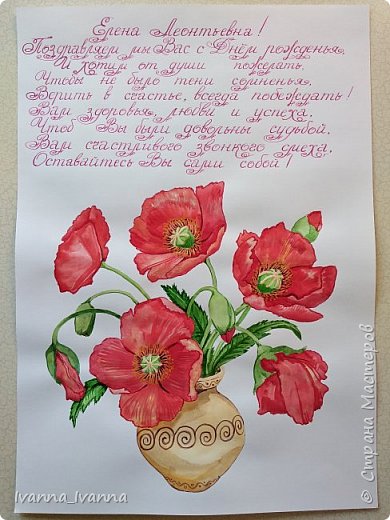 Елена Леонтьевна!
Поздравляем мы Вас с Днём рожденья,
И хотим от души пожелать.
Чтобы не было тени сомненья,
Верить в счастье, всегда побеждать!
Вам здоровья, любви и успеха,
Чтоб Вы были довольны судьбой,
Вам счастливого звонкого смеха,
Оставайтесь Вы сами собой!
© Страна Мастеров
Ivanna_Ivanna